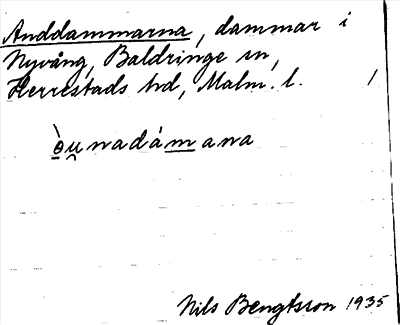 Anddammarna, dammar i
Nyvång, Baldringe sn,
Herrestads hd, Malm. l. /
ə̀u̯nadámana
Nils Bengtsson 1935